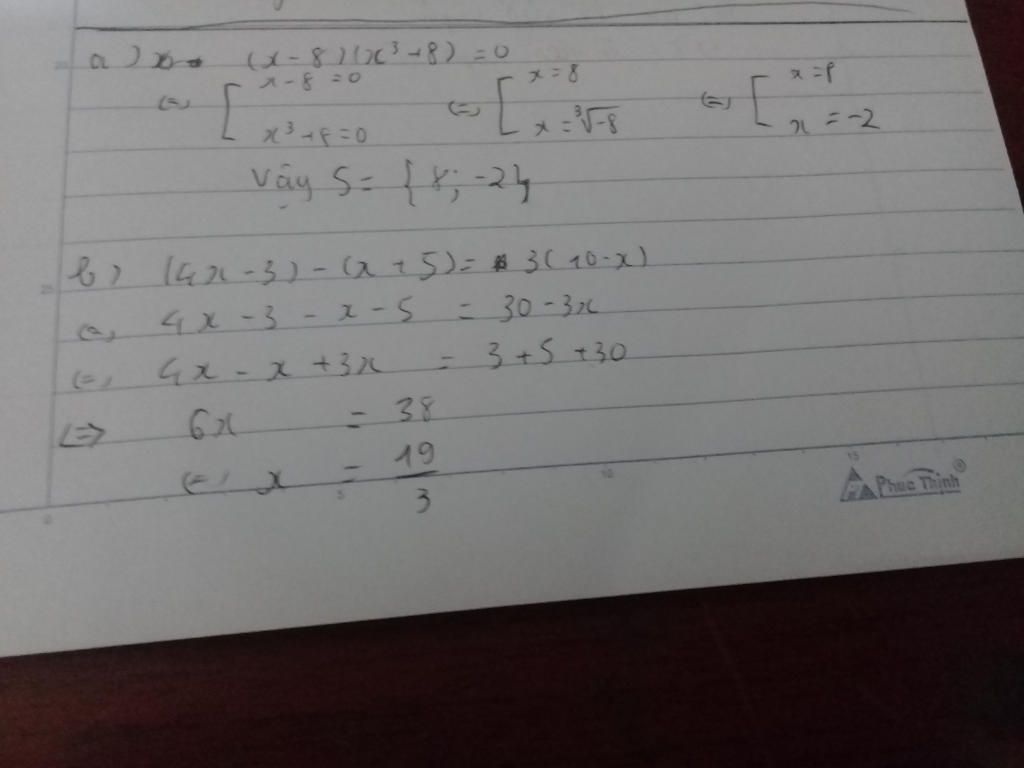 a) (x-8)(x³+8)=0
(=) [ x-8=0 (=) [ x=8 (=) [ x=8
x³+8=0 x=³√-8 x=-2
Vậy S={8;-2}
b) (4x-3)-(x+5)=3(10-x)
(=) 4x-3-x-5 = 30-3x
(=) 4x-x+3x = 3+5+30
<=> 6x = 38
(=) x = 19/3
Phuc Thịnh®